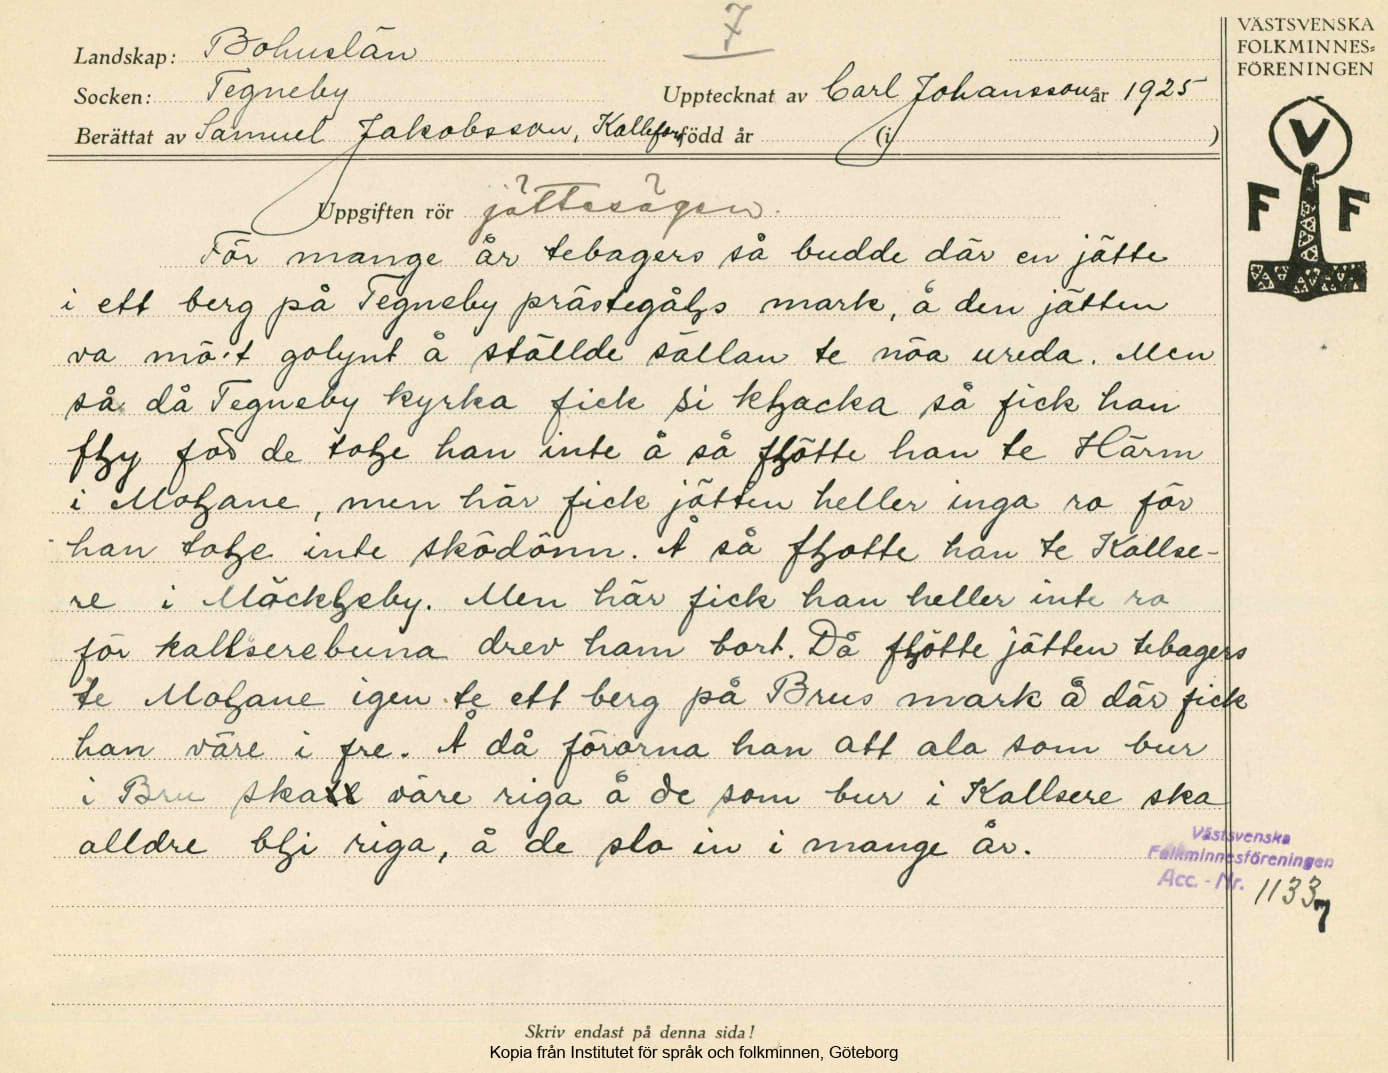 7
VÄSTSVENSKA
FOLKMINNES-
FÖRENINGEN
V
F F
Landskap: Bohuslän
Socken: Tegneby Upptecknat av Carl Johansson år 1925
Berättat av Samuel Jakobsson, född år (i )
Uppgiften rör jättesägen.
För mange år tebagers så budde där en jätte
i ett berg på Tegneby prästegåꜧs mark, å den jätten
va mö·t golynt å ställde sällan te nöa ureda. Men
så då Tegneby kyrka fick si kꜧacka så fick han
fꜧy för de toꜧe han inte å så fꜧötte han te Härm
i Moꜧane, men här fick jätten heller inga ro för
han toꜧe inte sködönn. Å så fꜧotte han te Kallse-
re i Mäckꜧeby. Men här fick han heller inte ro
för kallserebuna drev ham bort. Då fꜧötte jätten tebagers
te Moꜧane igen te ett berg på Brus mark å där fick
han väre i fre. Å då förorna han att ala som bur
i Bru ska väre riga å de som bur i Kallsere ska
alldre bꜧi riga, å de slo in i mange år.
Västsvenska
Folkminnesföreningen
Acc. - Nr. 1133 7
Skriv endast på denna sida!
Kopia från Institutet för språk och folkminnen, Göteborg